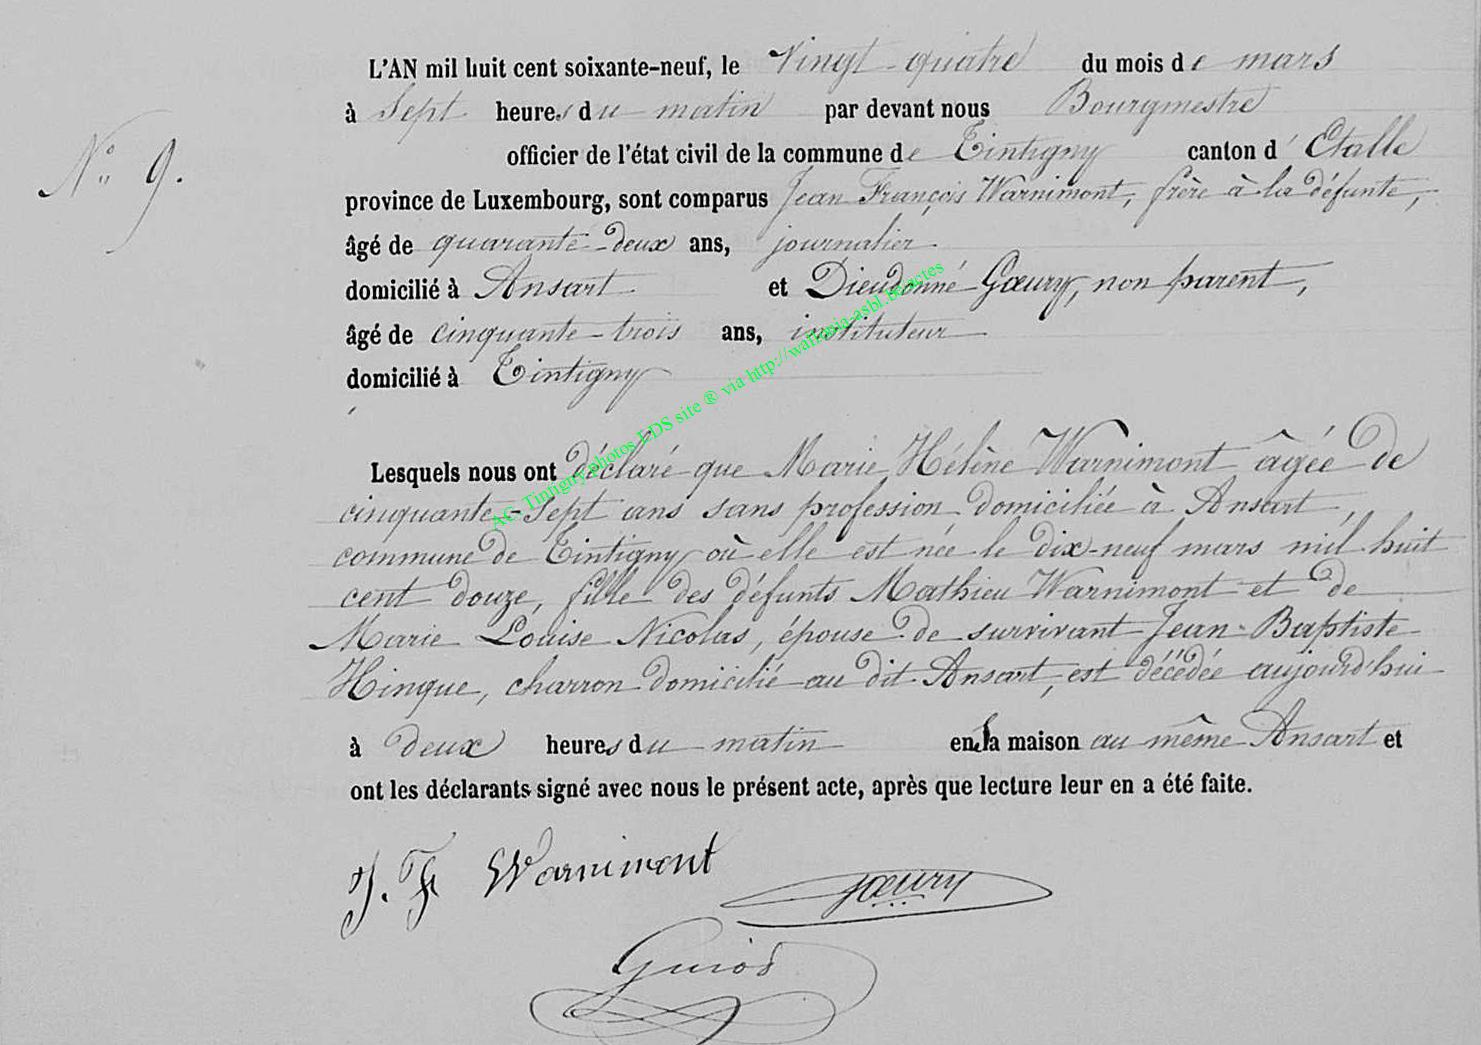 L'AN mil huit cent soixante-neuf, le Vingt-quatre du mois de mars
à Sept heures du matin par devant nous Bourgmestre
N° 9.
officier de l'état civil de la commune de Tintigny canton d'Etalle
province de Luxembourg, sont comparus Jean François Warnimont, frère à la défunte,
âgé de quarante-deux ans, journalier
domicilié à Ansart et Dieudonné Gœury, non parent,
âgé de cinquante-trois ans, instituteur
domicilié à Tintigny
AC Tintigny photos EDS site ® via http://wanania-asbl.be/actes
Lesquels nous ont déclaré que Marie Hélène Warnimont âgée de
cinquante-Sept ans sans profession domiciliée à Ansart,
commune de Tintigny où elle est née le dix-neuf mars mil huit
cent douze, fille des défunts Mathieu Warnimont et de
Marie Louise Nicolas, épouse de survivant Jean-Baptiste
Hinque, charron domicilié au dit Ansart, est décédée aujourd'hui
à deux heures du matin en sa maison au même Ansart et
ont les déclarants signé avec nous le présent acte, après que lecture leur en a été faite.
J. F. Warnimont
Gœury